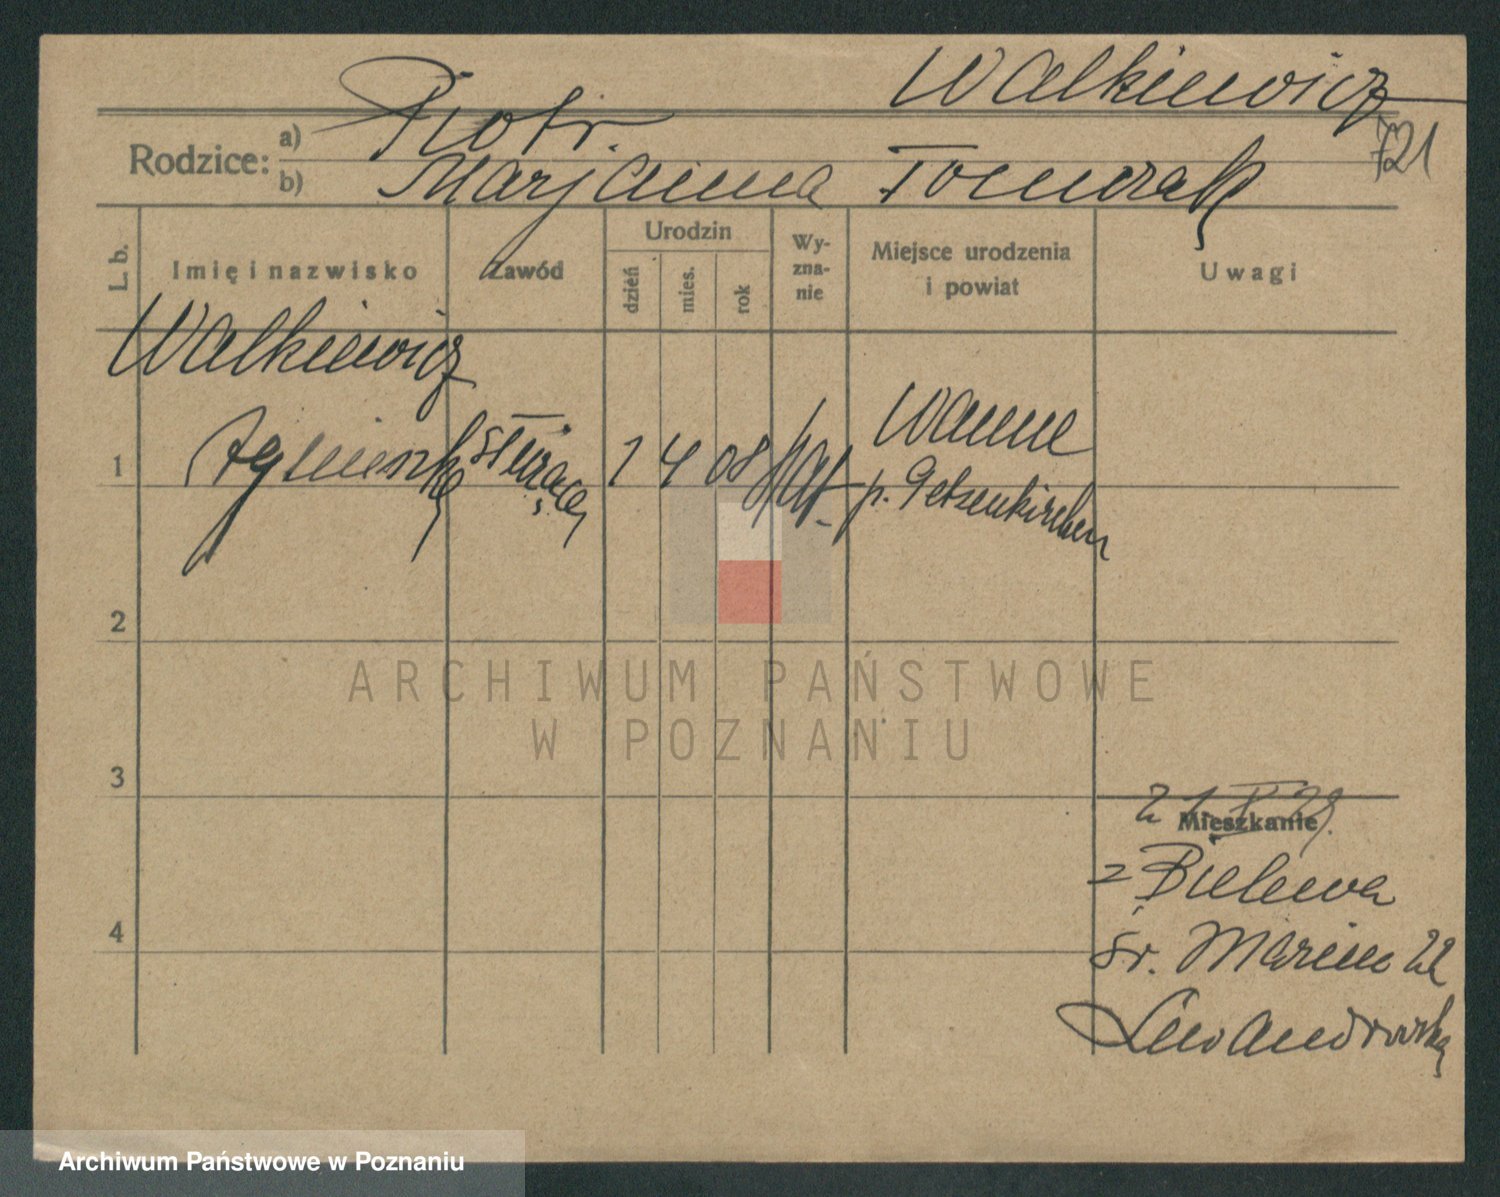 Walkiewicz
721
Rodzice: a) Piotr
b) Marjanna Tomczak
L. b.
Imię i nazwisko
Zawód
Urodzin
dzień
mies.
rok
Wy-
zna-
nie
Miejsce urodzenia
i powiat
Uwagi
Walkiewicz
1 Agnieszka służąca 1 4 08 kat. Wanne
p. Gelsenkirchen
2
ARCHIWUM PAŃSTWOWE
W POZNANIU
3
Mieszkanie
z Bielewa
Św. Marcin 22
Lewandowska
4
Archiwum Państwowe w Poznaniu